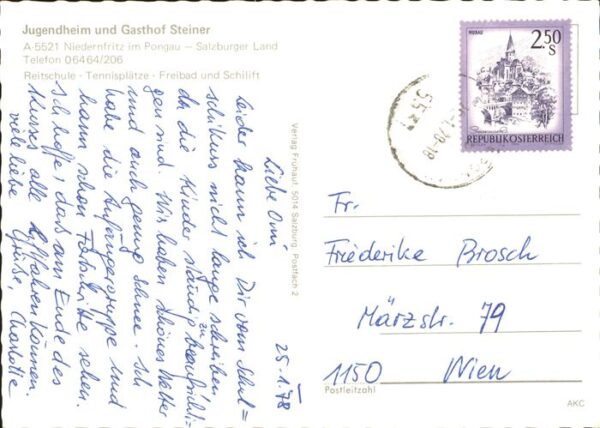 Jugendheim und Gasthof Steiner
A-5521 Niedernfritz im Pongau – Salzburger Land
Telefon 06464/206
Reitschule · Tennisplätze · Freibad und Schilift
25.1.78
Liebe Omi
leider kann ich Dir vom Schul=
schikurs nicht lange schreiben
da die Kinder ständig zu beaufsichti=
gen sind. Wir haben schönes Wetter
und auch genug Schnee. Ich
habe die Anfängergruppe und
kann schon Fortschritte sehen.
Ich hoffe, daß am Ende des
Kurses alle liftfahren können.
Viele liebe
Grüße, Charlotte
Verlag Frühauf 5014 Salzburg Postfach 2
MURAU
2.50
S
REPUBLIK ÖSTERREICH
Fr.
Friederike Brosch
Märzstr. 79
1150 Wien
Postleitzahl
AKC